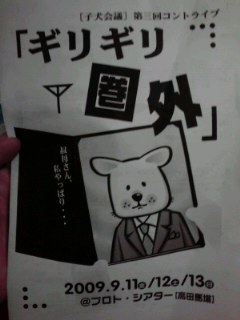 ［子犬会議］第三回コントライブ
「ギリギリ
圏外」
叔母さん、
私やっぱり・・・
2009.9.11㊎/12㊏/13㊐
@プロト・シアター[高田馬場]